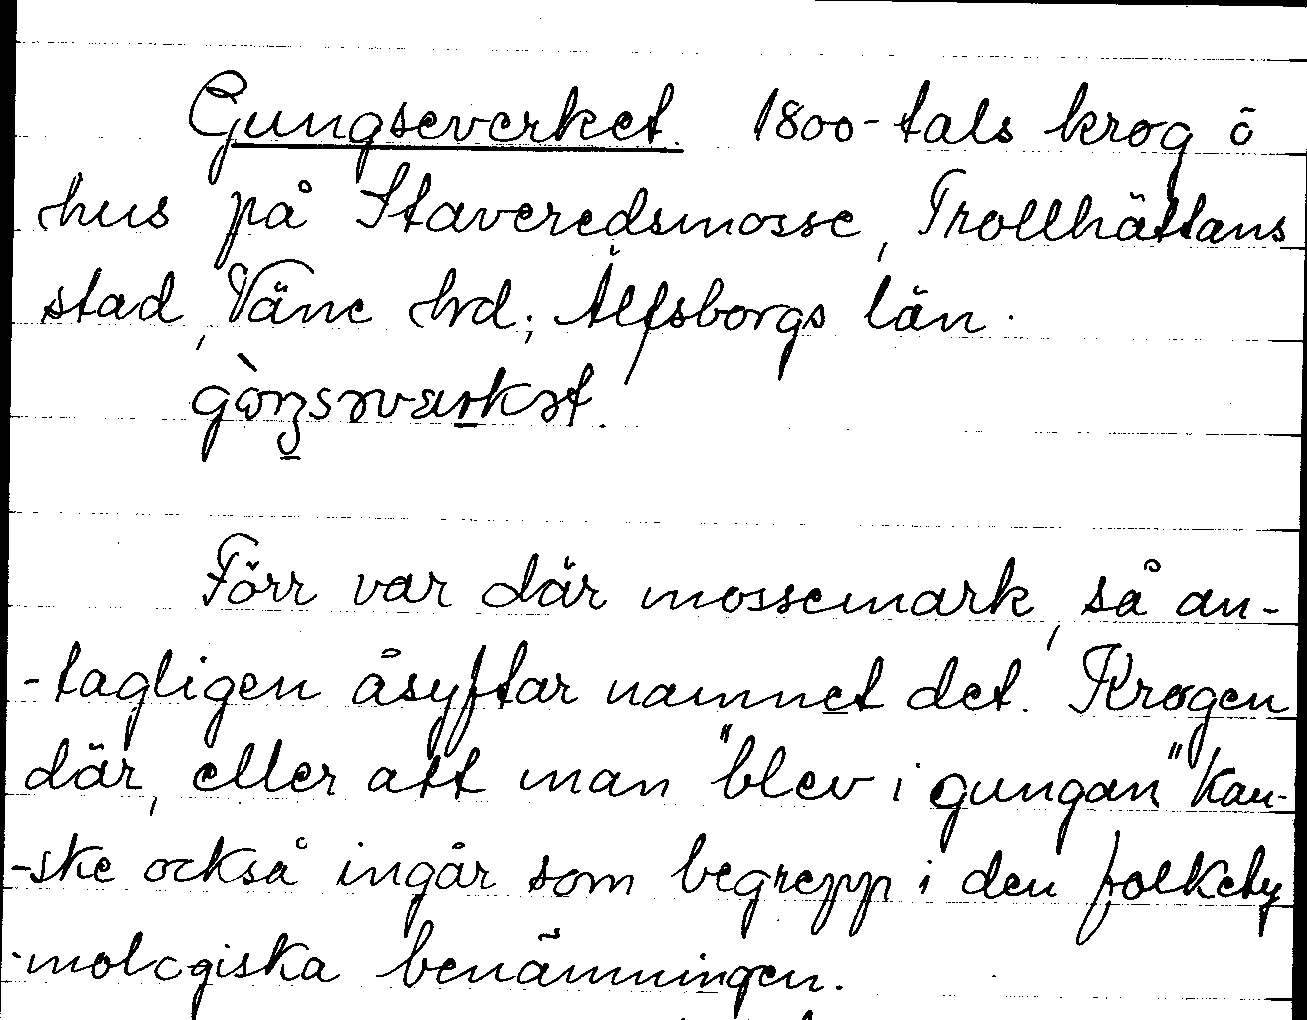 Gungseverket. 1800-tals krog ō
hus på Staveredsmosse, Trollhättans
stad, Väne hd; Älfsborgs län.
Förr var där mossemark, så an-
-tagligen åsyftar namnet det. Krogen
där, eller att man "blev i gungan" kan-
-ske också ingår som begrepp i den folkety
-mologiska benämningen.